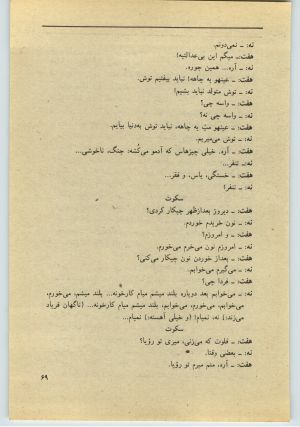 نه: ـ نمی‌دونم.
هفت: ـ میگم این بی‌عدالتیه!
نه: ـ آره... همین جوره.
هفت: ـ عینهو یه چاهه! نباید بیفتیم توش.
نه: ـ توش متولد نباید بشیم!
هفت: ـ واسه چی؟
نه: ـ واسه چی نه؟
هفت: ـ عینهو مثِ یه چاهه، نباید توش به‌دنیا بیایم.
نه: ـ توش می‌میریم.
هفت: ـ آره. خیلی چیزهاس که آدمو می‌کُشه: جنگ، ناخوشی...
نه: ـ تنفر...
هفت: ـ خستگی، یاس، و فقر...
نه: ـ تنفر!
سکوت
هفت: ـ دیروز بعدازظهر چیکار کردی؟
نه: ـ نون خریدم خوردم.
هفت: ـ و امروزم؟
نه: ـ امروزم نون می‌خرم می‌خورم.
هفت: ـ بعداز خوردن نون چیکار می‌کنی؟
نه: ـ می‌گیرم می‌خوابم.
هفت: ـ فردا چی؟
نه: ـ می‌خوابم بعد دوباره بلند میشم میام کارخونه... بلند میشم، می‌خورم،
می‌خوابم، می‌خورم، می‌خوابم، بلند میشم میام کارخونه... (ناگهان فریاد
می‌زند:) نه، نمیام! (و خیلی آهسته:) نمیام...
سکوت
هفت: ـ فلوت که می‌زنی، میری تو رؤیا؟
نه: ـ بعضی وقتا.
هفت: ـ آره، منم میرم تو رؤیا.
۶۹